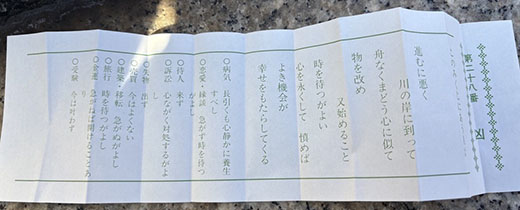 第二十八番
凶
進むに悪く
川の岸に到って
舟なくまどう心に似て
物を改め
又始めること
時を待つがよい
心を永くして 慎めば
よき機会が
幸せをもたらしてくる
○病気 長引くも心静かに養生
すべし
○恋愛・縁談 急がず時を待つ
がよし
○待人 来ず
○訴訟 心ながく対処するがよ
し
○失物 出ず
○売買 今はよくない
○建築・移転 急がぬがよし
○旅行 時を待つがよし
○金運 急がねば開けることあ
り
○受験 今は叶わず